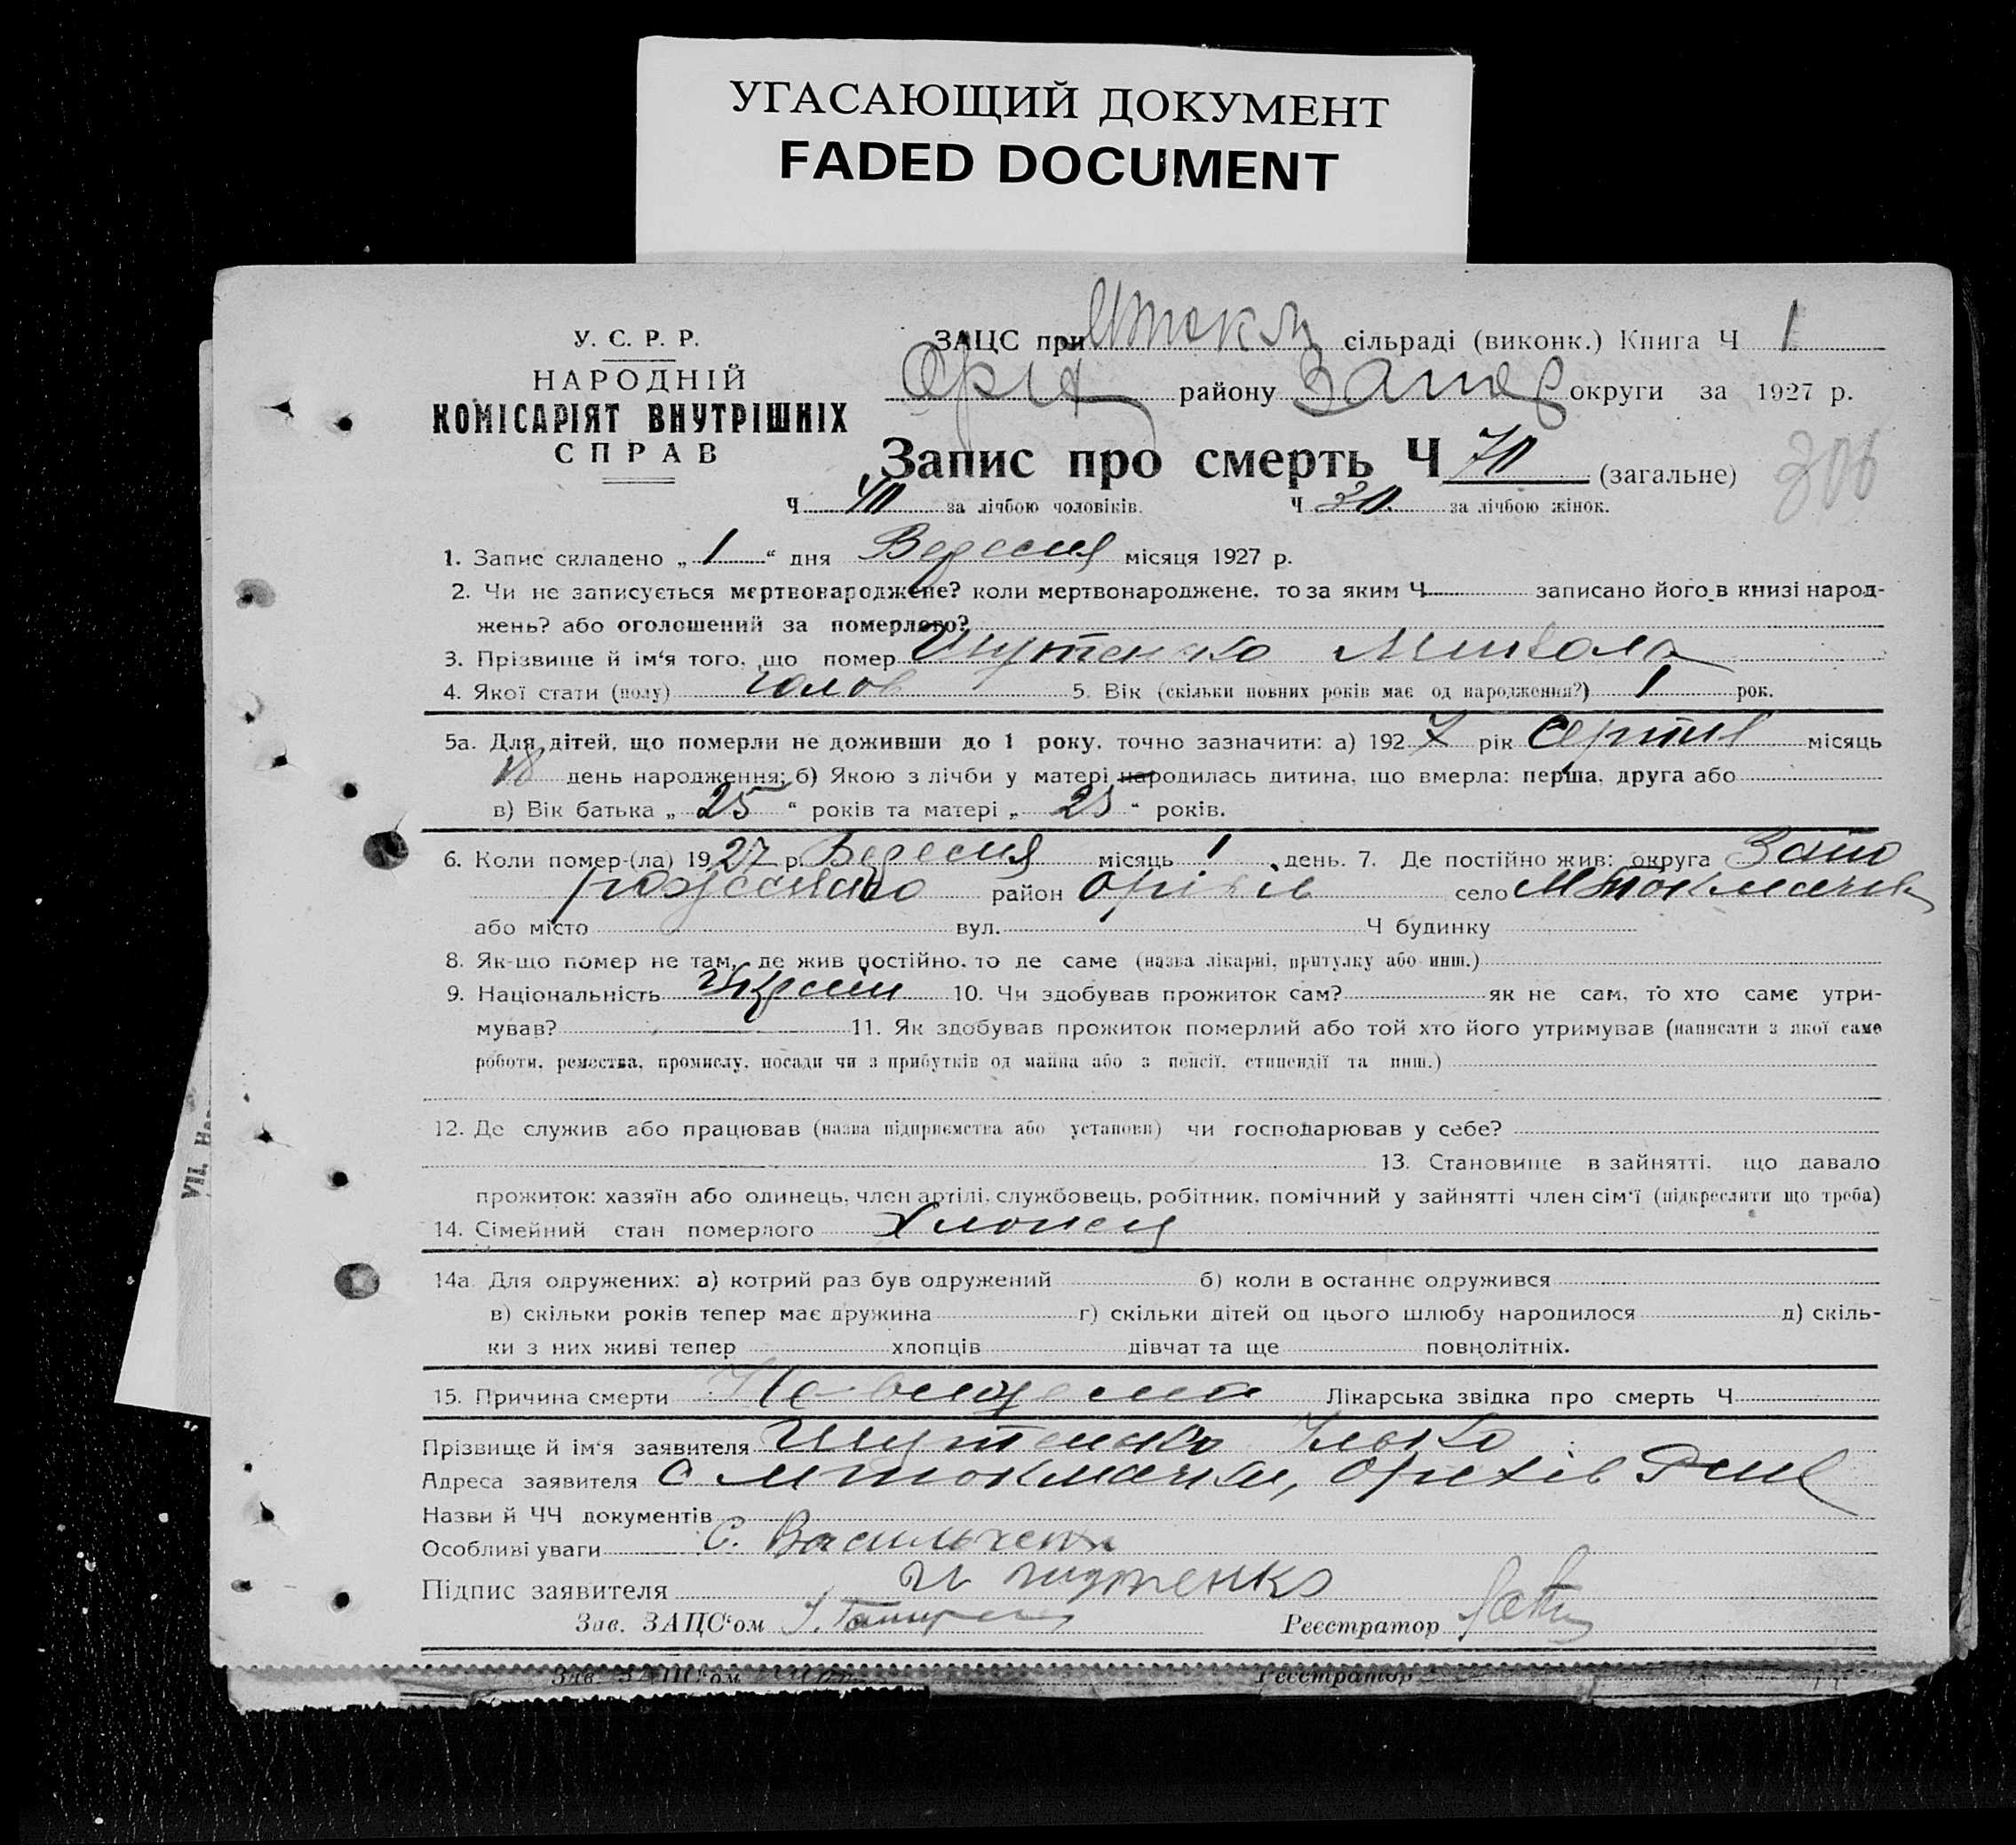 УГАСАЮЩИЙ ДОКУМЕНТ
FADED DOCUMENT
У. С. Р. Р.
НАРОДНІЙ
КОМІСАРІЯТ ВНУТРІШНІХ
СПРАВ
ЗАЦС при М Токм сільраді (виконк.) Книга Ч 1
Оріх району Запор округи за 1927 р.
Запис про смерть Ч 70 (загальне)
306
Ч 40 за лічбою чоловіків. Ч 30 за лічбою жінок.
1. Запис складено „ 1 “ дня Вересня місяця 1927 р.
2. Чи не записується мертвонароджене? коли мертвонароджене, то за яким Ч записано його в книзі народ-
жень? або оголошений за померлого?
3. Прізвище й ім‘я того, що помер Шутенко Микола
4. Якої стати (полу) чолов 5. Вік (скільки повних років має од народження?) 1 рок.
5а. Для дітей, що померли не доживши до 1 року, точно зазначити: а) 1927 рік Серпня місяць
18 день народження; б) Якою з лічби у матері народилась дитина, що вмерла: перша, друга або
в) Вік батька „ 25 “ років та матері „ 25 “ років.
6. Коли помер-(ла) 1927 р. Вересня місяць 1 день. 7. Де постійно жив: округа Запо
район Оріхів село МТокмачка
або місто вул. Ч будинку
8. Як-що помер не там, де жив постійно, то де саме (назва лікарні, притулку або инш.)
9. Національність Україн 10. Чи здобував прожиток сам? як не сам, то хто саме утри-
мував? 11. Як здобував прожиток померлий або той хто його утримував (написати з якої саме
роботи, ремества, промислу, посади чи з прибутків од майна або з пенсії, стипендії та инш.)
12. Де служив або працював (назва підприємства або установи) чи господарював у себе?
13. Становище в зайнятті, що давало
прожиток: хазяїн або одинець, член артілі, службовець, робітник, помічний у зайнятті член сім‘ї (підкреслити що треба)
14. Сімейний стан померлого Хлопець
14а. Для одружених: а) котрий раз був одружений б) коли в останнє одружився
в) скільки років тепер має дружина г) скільки дітей од цього шлюбу народилося д) скіль-
ки з них живі тепер хлопців дівчат та ще повнолітніх.
15. Причина смерти Лікарська звідка про смерть Ч
Прізвище й ім‘я заявителя Шутенко Ілько
Адреса заявителя С. МТокмачки, Оріхів
Назви й ЧЧ документів
Особливі уваги С. Васильченко
Підпис заявителя
Зав. ЗАЦС‘ом Реєстратор
Зав. ЗАЦС‘ом Реєстратор
VII. На